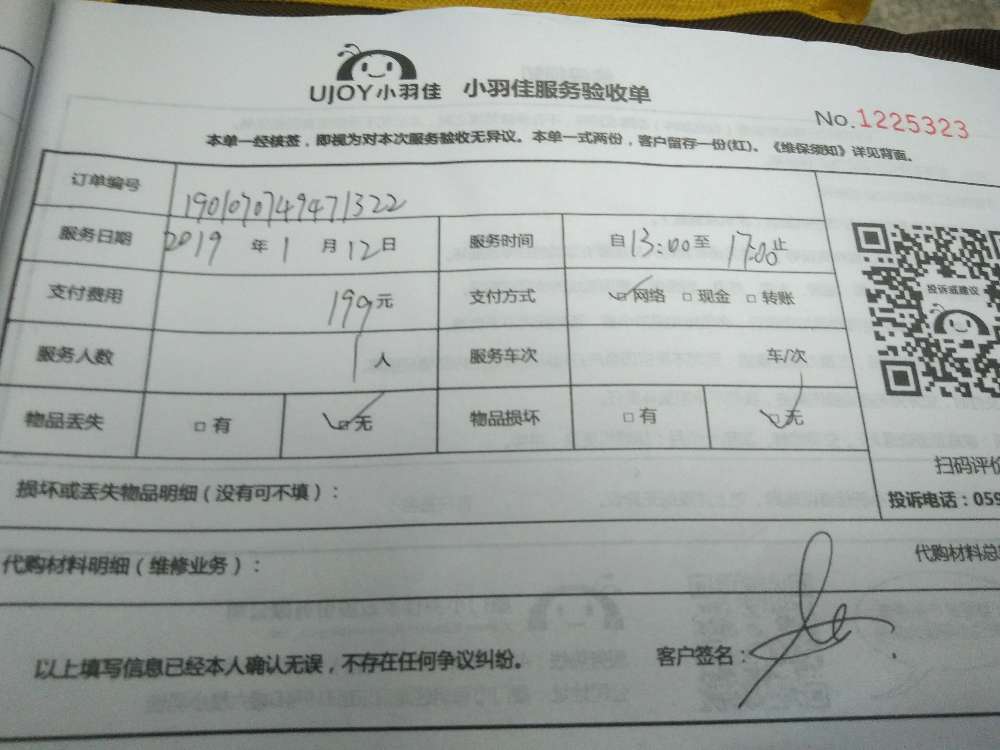 UJOY小羽佳 小羽佳服务验收单
No.1225323
本单一经核签，即视为对本次服务验收无异议。本单一式两份，客户留存一份(红)。《维保须知》详见背面。
订单编号 1901070749471322
服务日期 2019 年 1 月 12 日 服务时间 自 13:00 至 17:00 止
支付费用 199 元 支付方式 ☑网络 □现金 □转账
服务人数 1 人 服务车次 车/次
物品丢失 □有 ☑无 物品损坏 □有 ☑无
投诉或建议
扫码评价
损坏或丢失物品明细（没有可不填）：
投诉电话：059
代购材料明细（维修业务）：
代购材料总
以上填写信息已经本人确认无误，不存在任何争议纠纷。 客户签名：